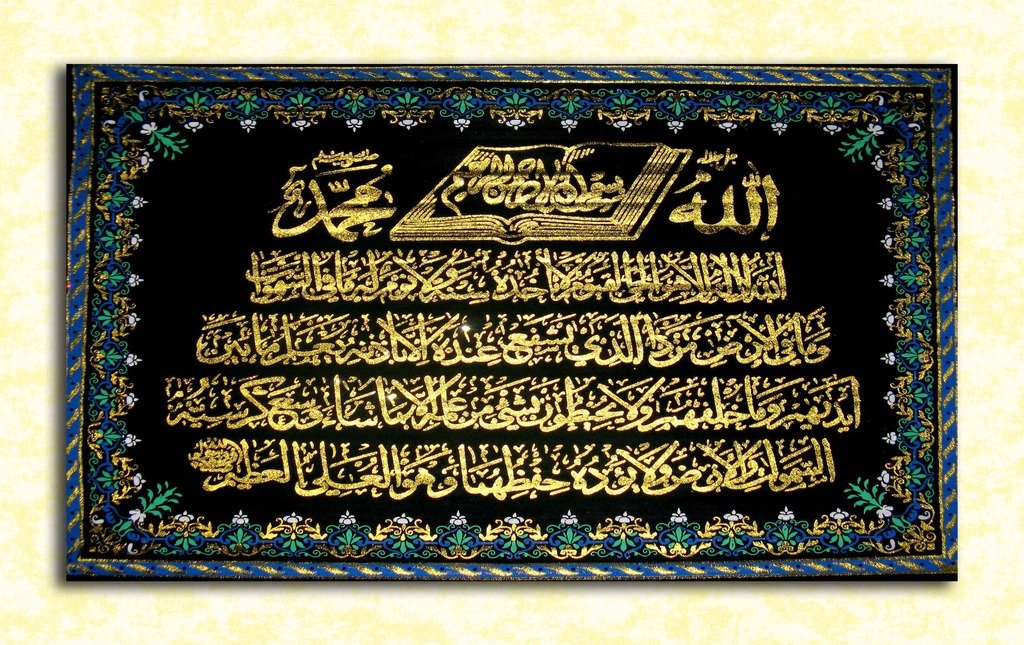 الله جل جلاله
بسم الله الرحمن الرحيم
محمد
الله لا إله إلا هو الحي القيوم لا تأخذه سنة ولا نوم له ما في السموات
وما في الأرض من ذا الذي يشفع عنده إلا بإذنه يعلم ما بين
أيديهم وما خلفهم ولا يحيطون بشيء من علمه إلا بما شاء وسع كرسيه
السموات والأرض ولا يؤده حفظهما وهو العلي العظيم